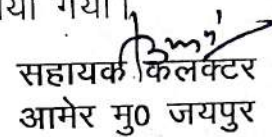 या गया।
सहायक कलक्टर
आमेर मु0 जयपुर